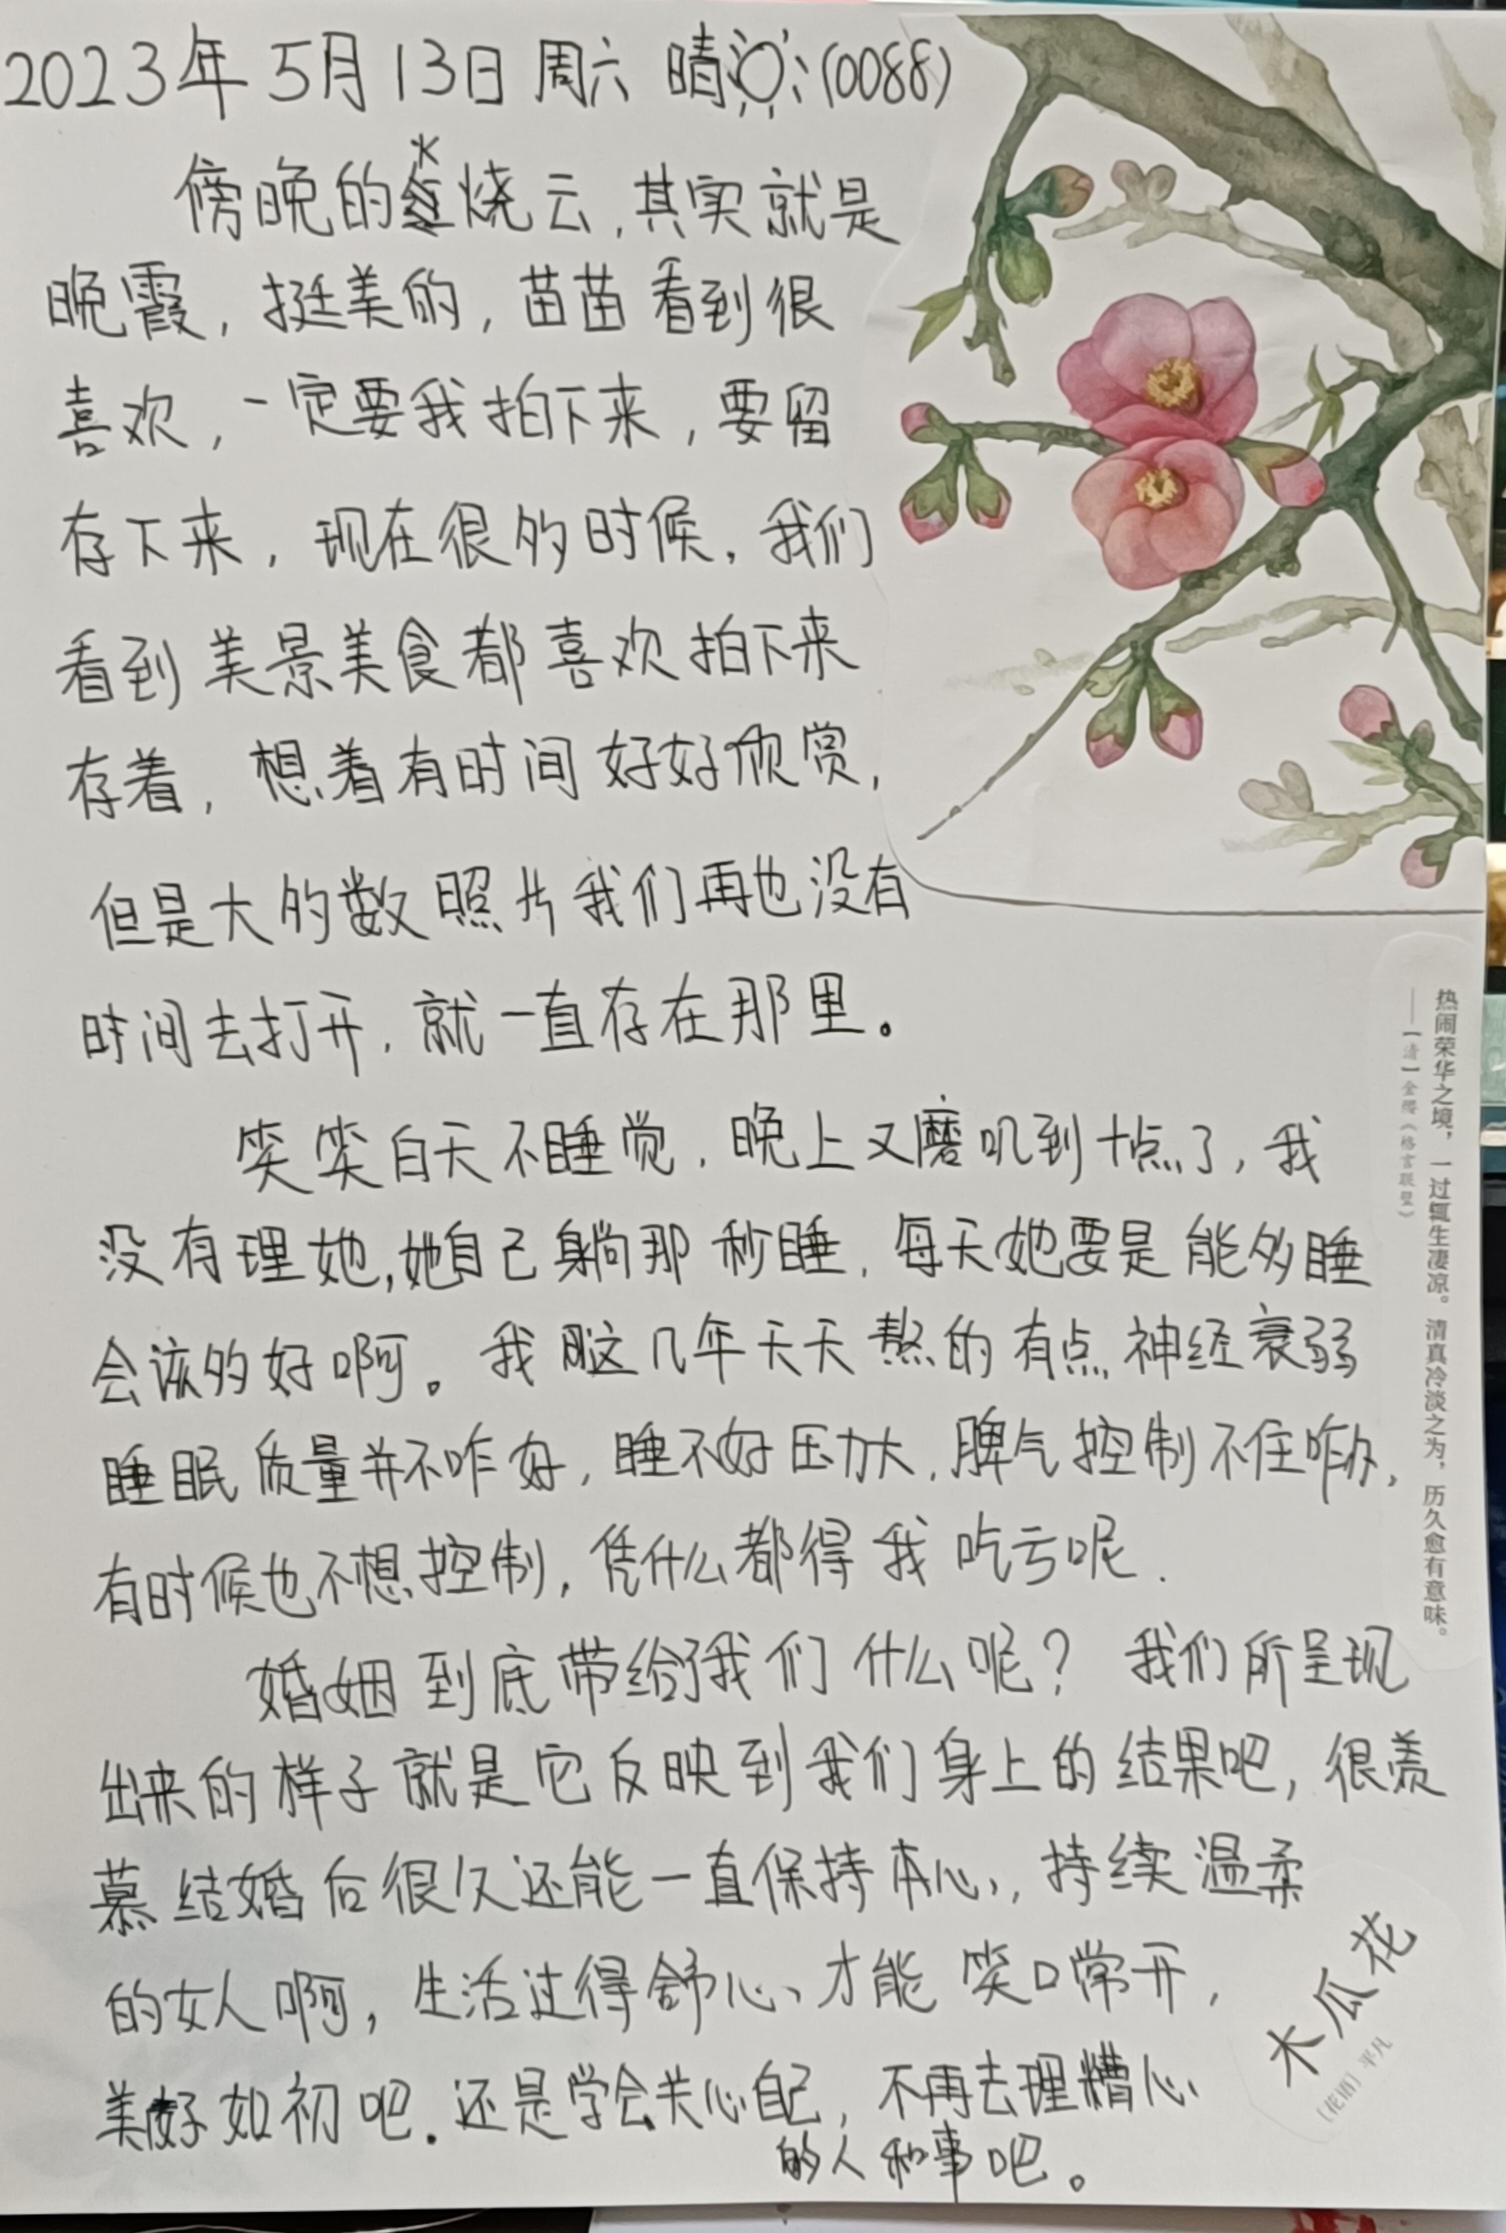 2023年5月13日 周六 晴 (0088)
傍晚的火烧云,其实就是
晚霞,挺美的,苗苗看到很
喜欢,一定要我拍下来,要留
存下来,现在很多时候,我们
看到美景美食都喜欢拍下来
存着,想着有时间好好欣赏,
但是大的数照片我们再也没有
时间去打开,就一直存在那里。
笑笑白天不睡觉,晚上又磨叽到十点了,我
没有理她,她自己躺那秒睡,每天她要是能多睡
会该多好啊。我这几年天天熬的有点神经衰弱
睡眠质量并不咋好,睡不好压力大,脾气控制不住咋办,
有时候也不想控制,凭什么都得我吃亏呢.
婚姻到底带给了我们什么呢?我们所呈现
出来的样子就是它反映到我们身上的结果吧,很羡
慕结婚后很久还能一直保持本心,持续温柔
的女人啊,生活过得舒心、才能笑口常开,
美好如初吧.还是学会关心自己,不再去理糟心
的人和事吧。
热闹荣华之境,一过辄生凄凉。清真冷淡之为,历久愈有意味。
——【清】金缨《格言联璧》
木瓜花
[花语] 平凡